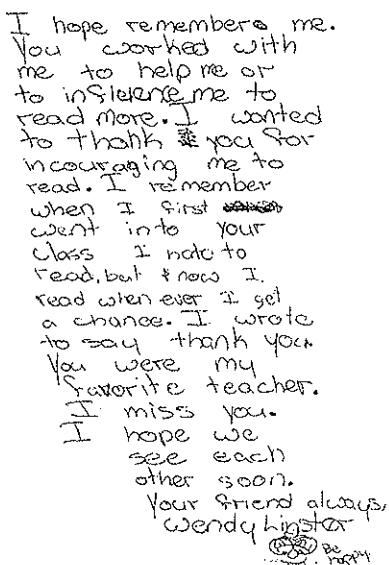 I hope remembers me.
You worked with
me to help me or
to infilerne me to
read more. I wanted
to thank you for
incouraging me to
read. I remember
when I first
went into your
class I hate to
read, but now I
read when ever I get
a chance. I wrote
to say thank you.
You were my
favorite teacher.
I miss you.
I hope we
see each
other soon.
Your friend always,
Wendy Lingster
Be
Happy